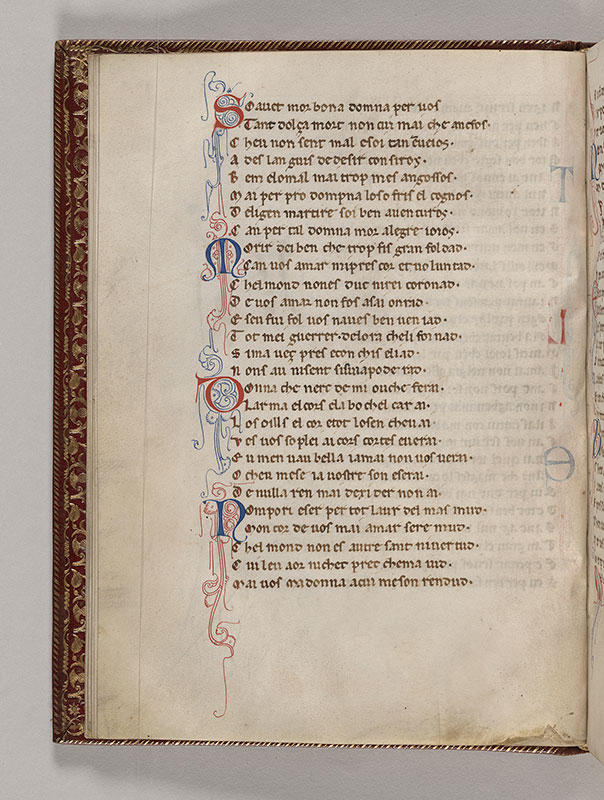 Soauet mor bona domna per uos
Tant dolça mort non cui mai che ancſos.
C heu non ſent mal e ſoi tan
A des lan guis de deſir conſiros.
B em elo mal mai trop mes angoſſos.
M ai per pro dompna lo ſofris el cognos.
D eligen martire ſoi ben auenturos.
C an per tal domna mor alegre ioios.
Morir dei ben che trop fis gran foldad.
C an uos amar mi pres cor et uoluntad.
C hel mond non es duc ni rei coronad.
D e uos amar non fos aſai onrad.
E ſeu fui fol uos naues ben ueniad.
T ot mei guerrer. de lora cheli fo nad.
S i ma ueç pres e con chis e liad.
N on ſau niſent ſi ſina pode rad.
Donna che nere de mi ou che ferai.
L arma el cors ela bo chel car ai.
L os oills el cor e tot lo ſen cheu ai.
V es uos ſo plei ai cors cortes e uerai.
E u men uau bella ia mai non uos uerai.
O cheu me ſe ia uoſtre ſon e ſerai.
D e nulla ren mai dexi der non ai.
Nom pori eſer per tot laur del mas mud.
M on cor de uos mai amar ſere mud.
C hel mond non es autre ſant ni uertud.
C ui leu aor ni chet pret chema iud.
M ai uos ma donna a cui me ſon rendud.
T
I